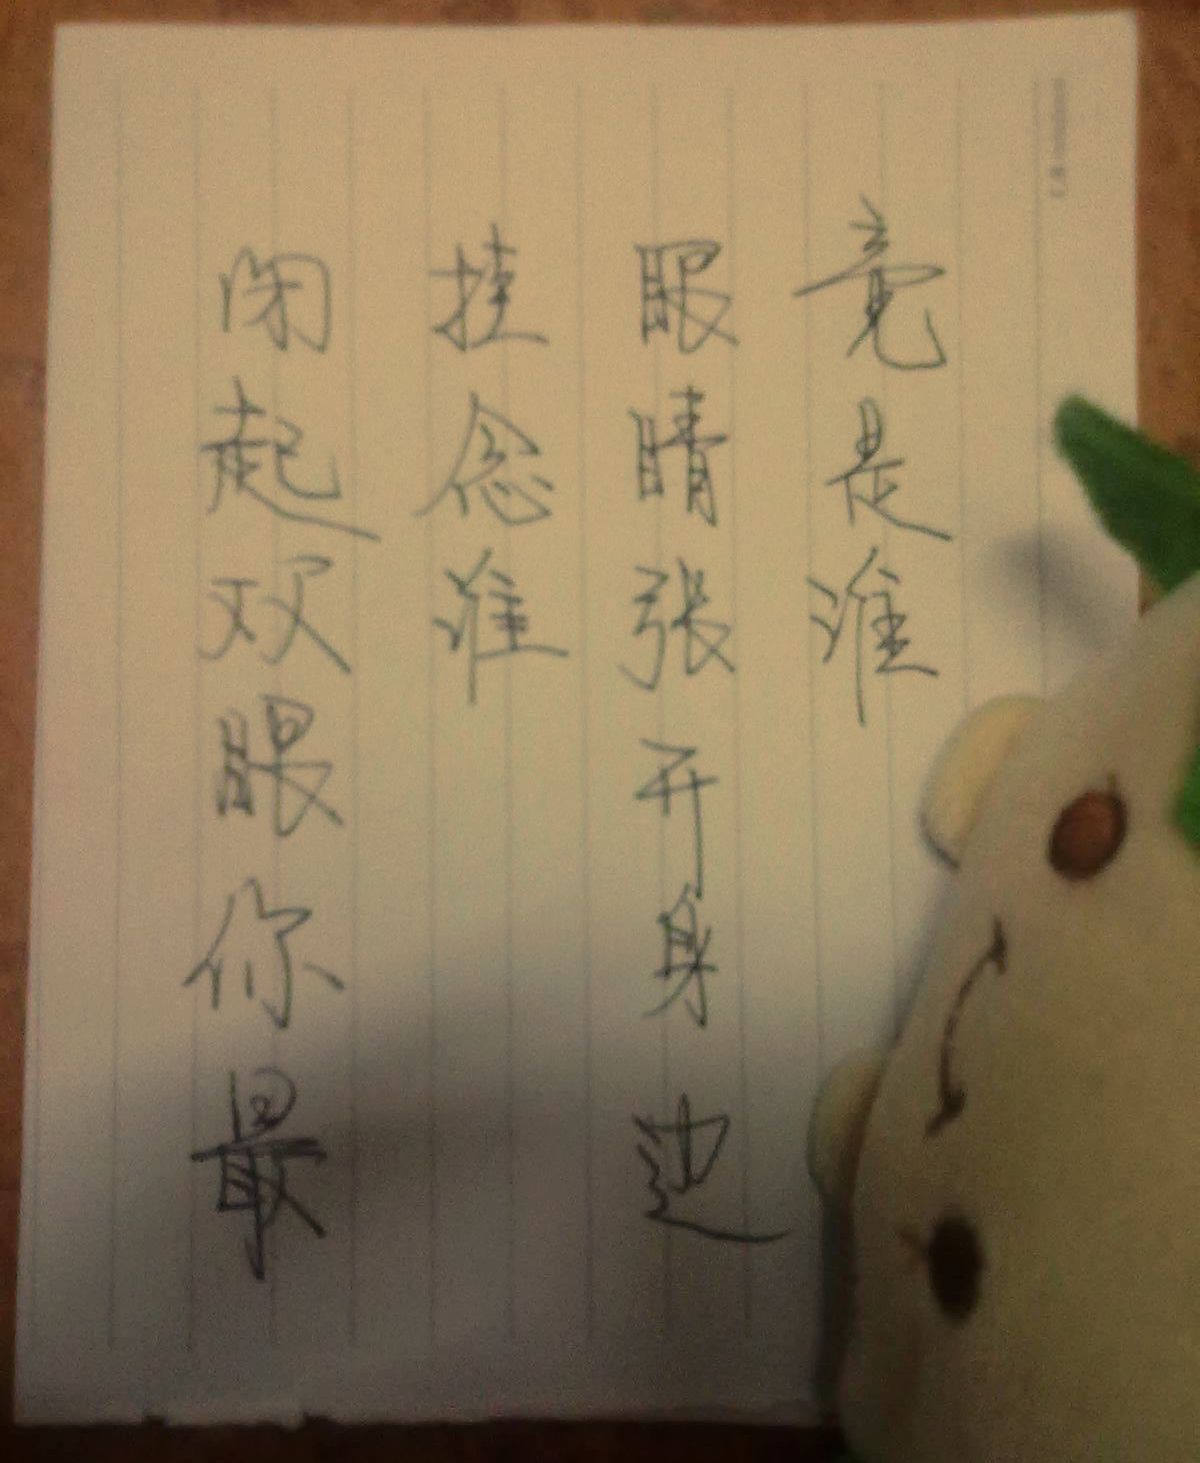 闭起双眼你最
挂念谁
眼睛张开身边
竟是谁